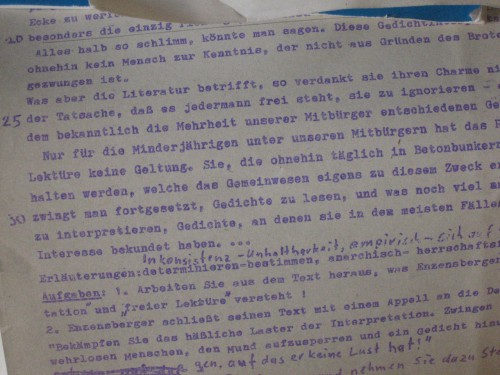 Ecke zu
20 besonders die einzig
Alles halb so schlimm, könnte man sagen. Diese
ohnehin kein Mensch zur Kenntnis, der nicht aus Gründen des Brote
gezwungen ist.
Was aber die Literatur betrifft, so verdankt sie ihren Charme ni
25 der Tatsache, daß es jedermann frei steht, sie zu ignorieren -
dem bekanntlich die Mehrheit unserer Mitbürger entschiedenen Ge
Nur für die Minderjährigen unter unseren Mitbürgern hat das
Lektüre keine Geltung. Sie, die ohnehin täglich in Betonbunkern
halten werden, welche das Gemeinwesen eigens zu diesem Zweck er
30 zwingt man fortgesetzt, Gedichte zu lesen, und was noch viel
zu interpretieren, Gedichte, an denen sie in dem meisten Fällen
Interesse bekundet haben. ...
Inkonsistenz - Unhaltbarkeit, empirisch - sich auf
Erläuterungen: determinieren-bestimmen, anarchisch- herrschafts
Aufgaben: 1. Arbeiten Sie aus dem Text heraus, was Enzensberger
tation" und "freier Lektüre" versteht !
2. Enzensberger schließt seinen Text mit einem Appell an die
"Bekämpfen Sie das häßliche Laster der Interpretation. Zwingen
wehrlosen Menschen, den Mund aufzusperren und ein gedicht
gen, auf das er keine Lust hat!"
nehmen Sie dazu